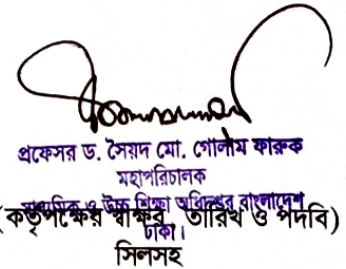 প্রফেসর ড. সৈয়দ মো. গোলাম ফারুক
মহাপরিচালক
মাধ্যমিক ও উচ্চ শিক্ষা অধিদপ্তর বাংলাদেশ
(কর্তৃপক্ষের স্বাক্ষর, তারিখ ও পদবি)
ঢাকা।
সিলসহ